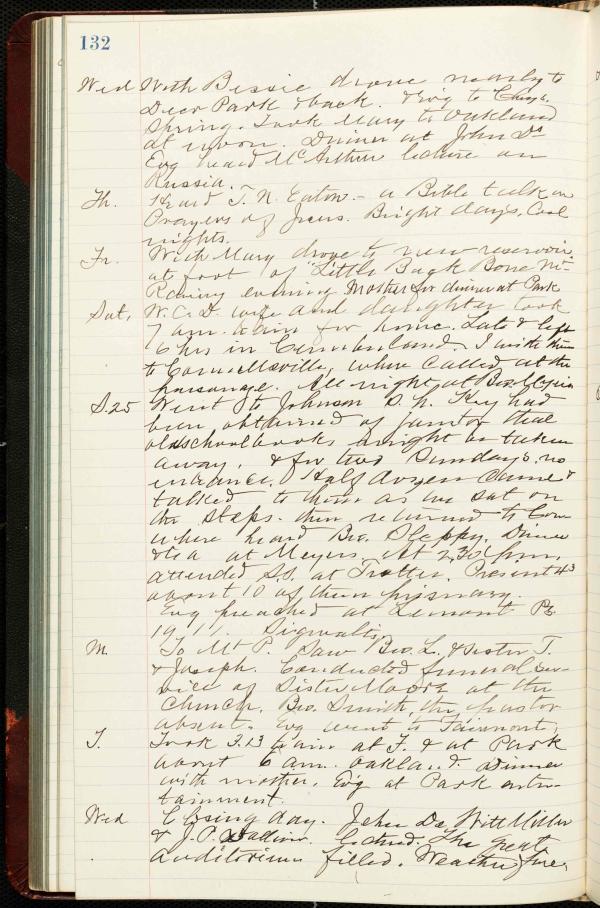 132
Wed With Bessie drove nearly to
Deer Park & back. Ev'g to
Spring. Took Mary to Oakland
at noon. Dinner at John Ds
Evg heard McArthur lecture on
Russia.
Th. Heard T. N. Eaton - a Bible talk on
Prayers of Jesus. Bright days, Cool
nights.
Fr. With Mary drove to new reservoir
at foot of "Little Back Bone Mt-
Rainy evening Mother for dinner at Park
Sat, W. C. D. wife and daughter took
7 am. train for home. Late & left
6 hrs in Cumberland. I with them
to Connellsville, where called at the
parsonage. All night at Bro.
S. 25 Went to Johnson S. h. Key had
been obtained of janitor that
old school books might be taken
away, & for two Sundays, no
entrance. Half dozen came &
talked to them as we sat on
the steps. then returned to Con
where heard Bro. Sleppy. Dinner
& tea at Meyers. At 2,30 p.m.
attended S.S. at Trotter. Present 43
about 10 of them primary.
Evg preached at Lemont Ps
19:11.
M. To Mt P. Saw Bro. L. & Sister T.
& Joseph. Conducted funeral ser-
vice of Sister Moore at the
Church, Bro. Smith, the pastor
absent. Evg went to Fairmont,
T. Took 3.13 train at F. & at Park
about 6 am. Oakland. Dinner
with mother. Ev'g at Park enter-
tainment.
Wed Closing day. John De Witt Miller
& J. P. lectured. The great
Auditorium filled. Weather fine,